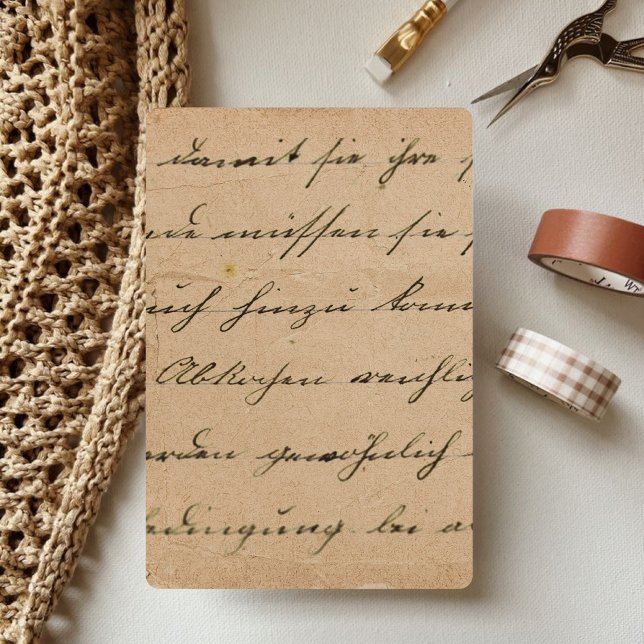 damit sie ihre
müssen sie
uch hinzu komm
Abkochen reichlig
erden gewöhnlich
edingung bei a